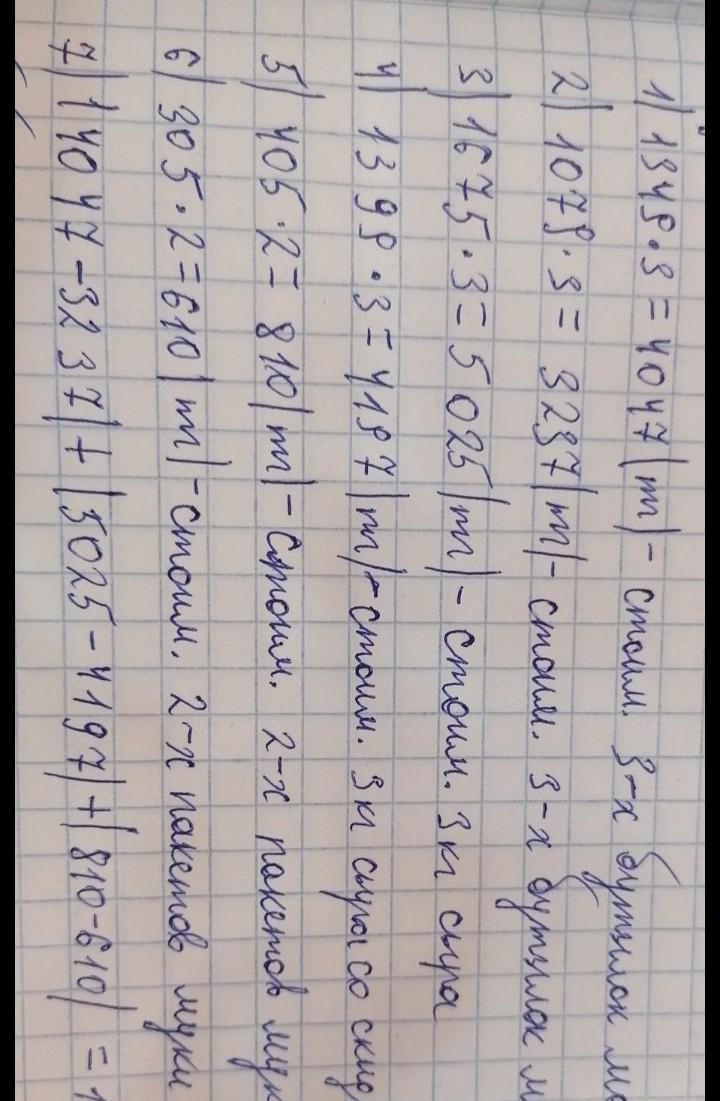 1) 1349·3=4047(тг)-стоим. 3-х бутылок
2) 1079·3=3237(тг)-стоим. 3-х бутылок
3) 1675·3=5025(тг)-стоим. 3 кг сыра
4) 1399·3=4197(тг)-стоим. 3 кг сыра со скид
5) 405·2=810(тг)-стоим. 2-х пакетов мук
6) 305·2=610(тг)-стоим. 2-х пакетов муки
7) (4047-3237)+(5025-4197)+(810-610)=1